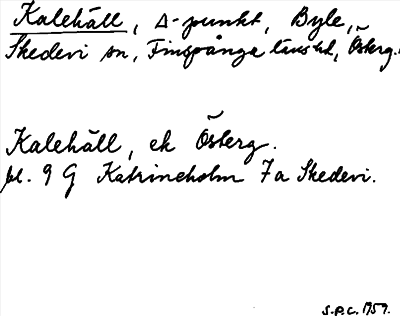 Kalehäll, Δ-punkt, Byle,
Skedevi sn, Finspånga länshd, Österg.
Kalehäll, ek Österg.
bl. 9 G Katrineholm 7a Skedevi.
S.P.C. 1959.